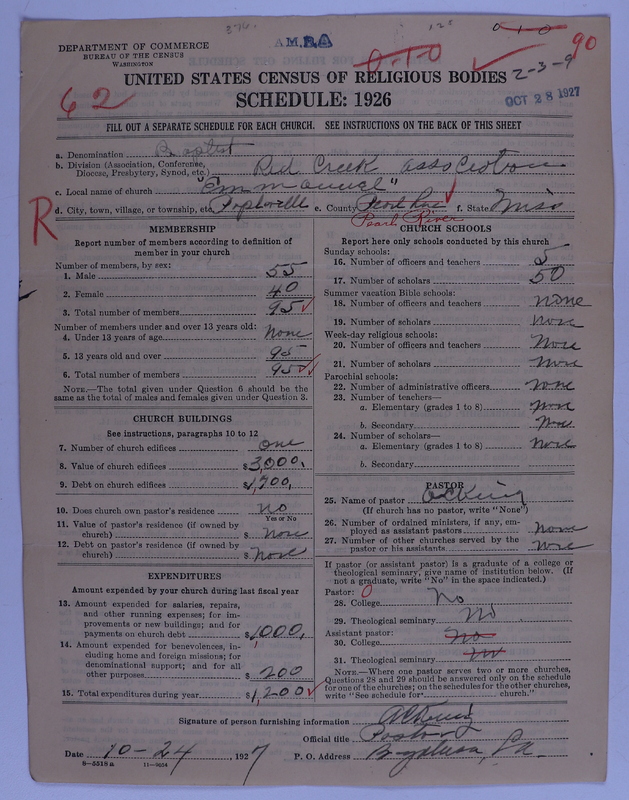 376. AMBA 125 0-1-0
DEPARTMENT OF COMMERCE 0-1-0 90
BUREAU OF THE CENSUS
WASHINGTON
UNITED STATES CENSUS OF RELIGIOUS BODIES 2-3-9
62 SCHEDULE: 1926 OCT 28 1927
FILL OUT A SEPARATE SCHEDULE FOR EACH CHURCH. SEE INSTRUCTIONS ON THE BACK OF THIS SHEET
a. Denomination Baptist
b. Division (Association, Conference,
Diocese, Presbytery, Synod, etc.) Red Creek association
c. Local name of church "Emmanuel"
R d. City, town, village, or township, etc. Poplarville e. County Pearl River f. State Miss
Pearl River
MEMBERSHIP
Report number of members according to definition of
member in your church
Number of members, by sex:
1. Male 55
2. Female 40
3. Total number of members 95
Number of members under and over 13 years old:
4. Under 13 years of age None
5. 13 years old and over 95
6. Total number of members 95
NOTE.—The total given under Question 6 should be
same as the total of males and females given under Question 3.
CHURCH BUILDINGS
See instructions, paragraphs 10 to 12
7. Number of church edifices one
8. Value of church edifices $3,000.
9. Debt on church edifices $1,700.
10. Does church own pastor's residence? no
Yes or No
11. Value of pastor's residence (if owned by
church) $ none
12. Debt on pastor's residence (if owned by
church) $ none
EXPENDITURES
Amount expended by your church during last fiscal year
13. Amount expended for salaries, repairs,
and other running expenses; for im-
provements or new buildings; and for
payments on church debt $1000.
14. Amount expended for benevolences, in-
cluding home and foreign missions; for
denominational support; and for all
other purposes $ 200
15. Total expenditures during year $1,200
CHURCH SCHOOLS
Report here only schools conducted by this church
Sunday schools:
16. Number of officers and teachers 5
17. Number of scholars 50
Summer vacation Bible schools:
18. Number of officers and teachers none
19. Number of scholars none
Week-day religious schools:
20. Number of officers and teachers None
21. Number of scholars None
Parochial schools:
22. Number of administrative officers none
23. Number of teachers—
a. Elementary (grades 1 to 8) none
b. Secondary None
24. Number of scholars—
a. Elementary (grades 1 to 8) none
b. Secondary
PASTOR
25. Name of pastor
(If church has no pastor, write "None")
26. Number of ordained ministers, if any, em-
ployed as assistant pastors none
27. Number of other churches served by the
pastor or his assistants none
If pastor (or assistant pastor) is a graduate of a college or
theological seminary, give name of institution below. (If
not a graduate, write "No" in the space indicated.)
Pastor: 0
28. College No
29. Theological seminary No
Assistant pastor:
30. College No
31. Theological seminary No
NOTE.—Where one pastor serves two or more churches,
Questions 28 and 29 should be answered only on the schedule
for one of the churches; on the schedules for the other churches,
write "See schedule for church."
Signature of person furnishing information
Official title Pastor
Date 10-24 1927 P. O. Address Bogalusa, La.
8—5518 a 11—9024